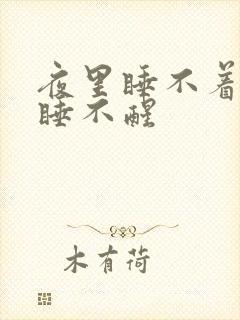 夜里睡不着
睡不醒
木有荷